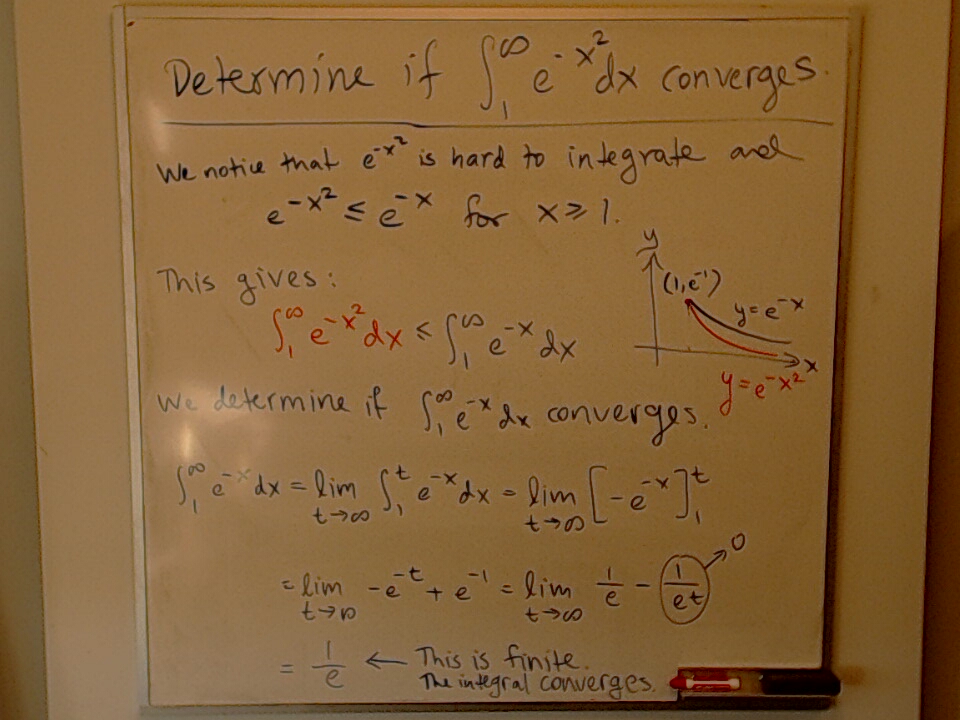 Determine if ∫₁^∞ e^{-x²}dx converges.
We notice that e^{-x²} is hard to integrate and
e^{-x²} ≤ e^{-x} for x ≥ 1.
This gives:
∫₁^∞ e^{-x²}dx ≤ ∫₁^∞ e^{-x}dx
y
(1,e^{-1})
y=e^{-x}
x
y=e^{-x²}
We determine if ∫₁^∞ e^{-x}dx converges.
∫₁^∞ e^{-x}dx = lim_{t→∞} ∫₁^t e^{-x}dx = lim_{t→∞} [-e^{-x}]₁^t
= lim_{t→∞} -e^{-t} + e^{-1} = lim_{t→∞} 1/e - 1/e^t → 0
= 1/e ← This is finite.
The integral converges.